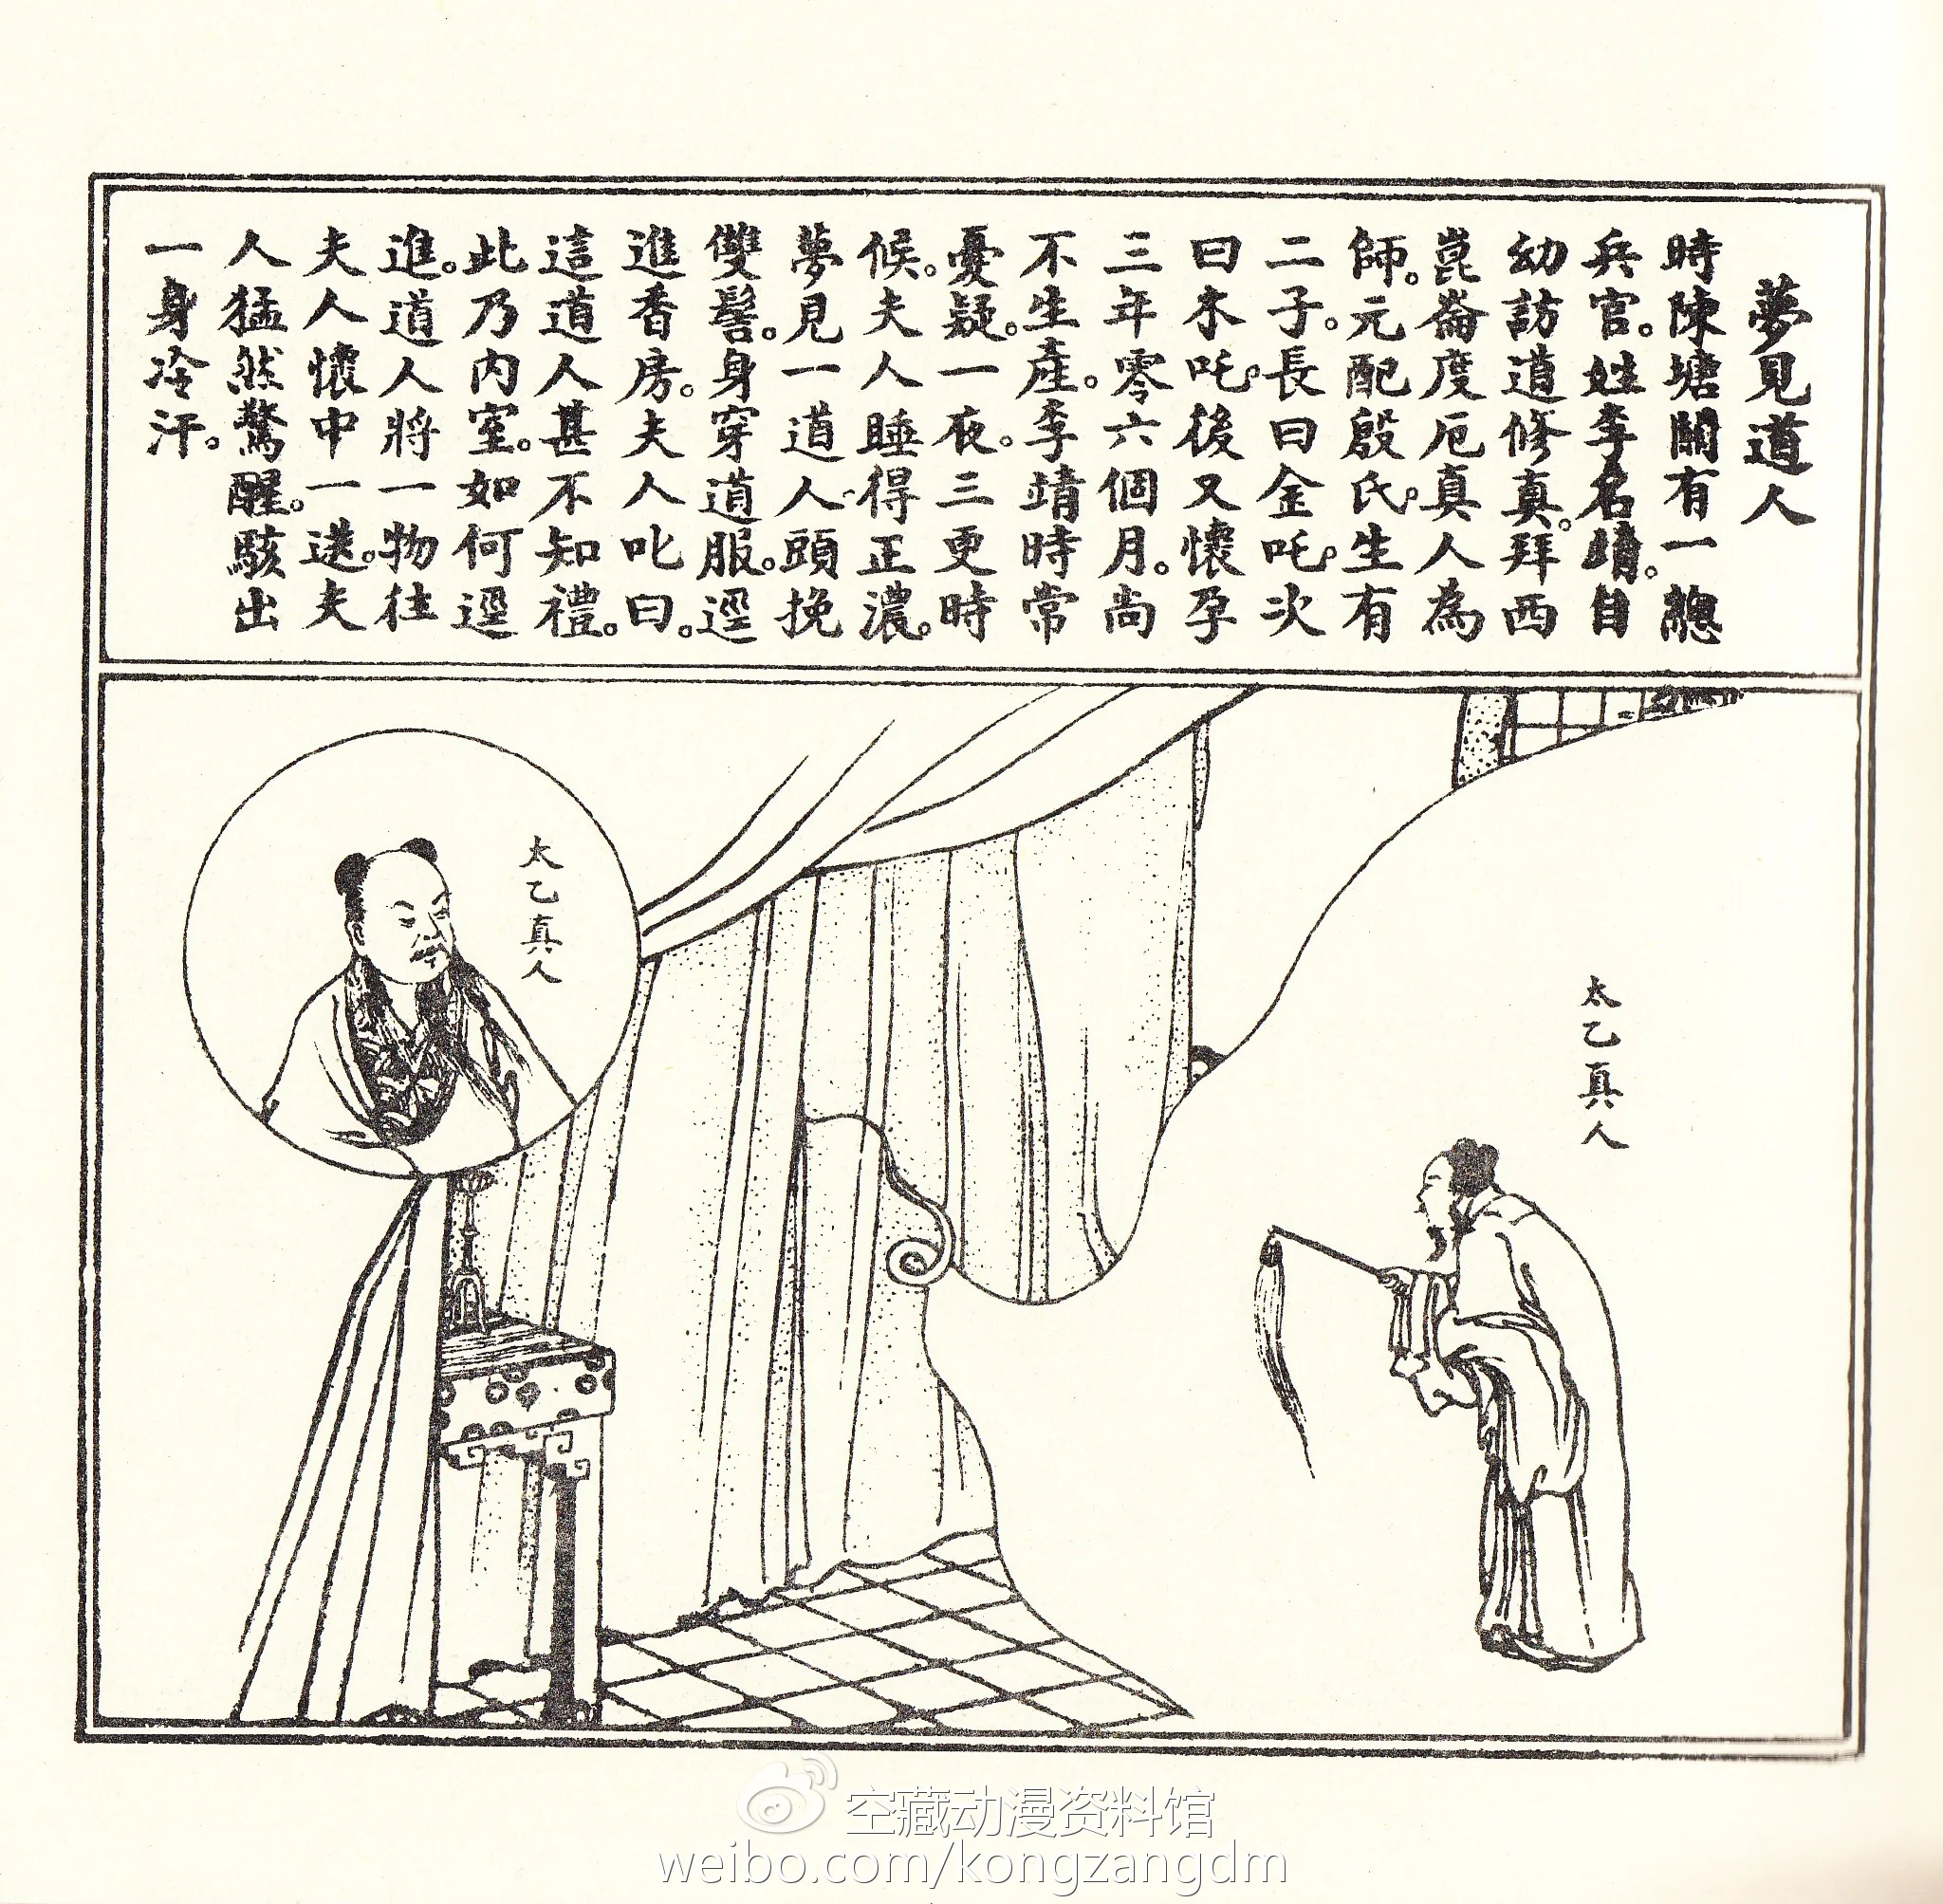 夢見道人
時陳塘關有一總
兵官。姓李名靖。自
幼訪道修真。拜西
崑崙度厄真人為
師。元配殷氏。生有
二子。長曰金吒。次
曰木吒。後又懷孕
三年零六個月。尚
不生產。李靖時常
憂疑。一夜。三更時
候。夫人睡得正濃。
夢見一道人。頭挽
雙髻。身穿道服。逕
進香房。夫人叱曰。
這道人甚不知禮。
此乃內室。如何逕
進。道人將一物往
夫人懷中一送。夫
人猛然驚醒。駭出
一身冷汗。
太乙真人
太乙真人
空藏动漫资料馆
weibo.com/kongzangdm